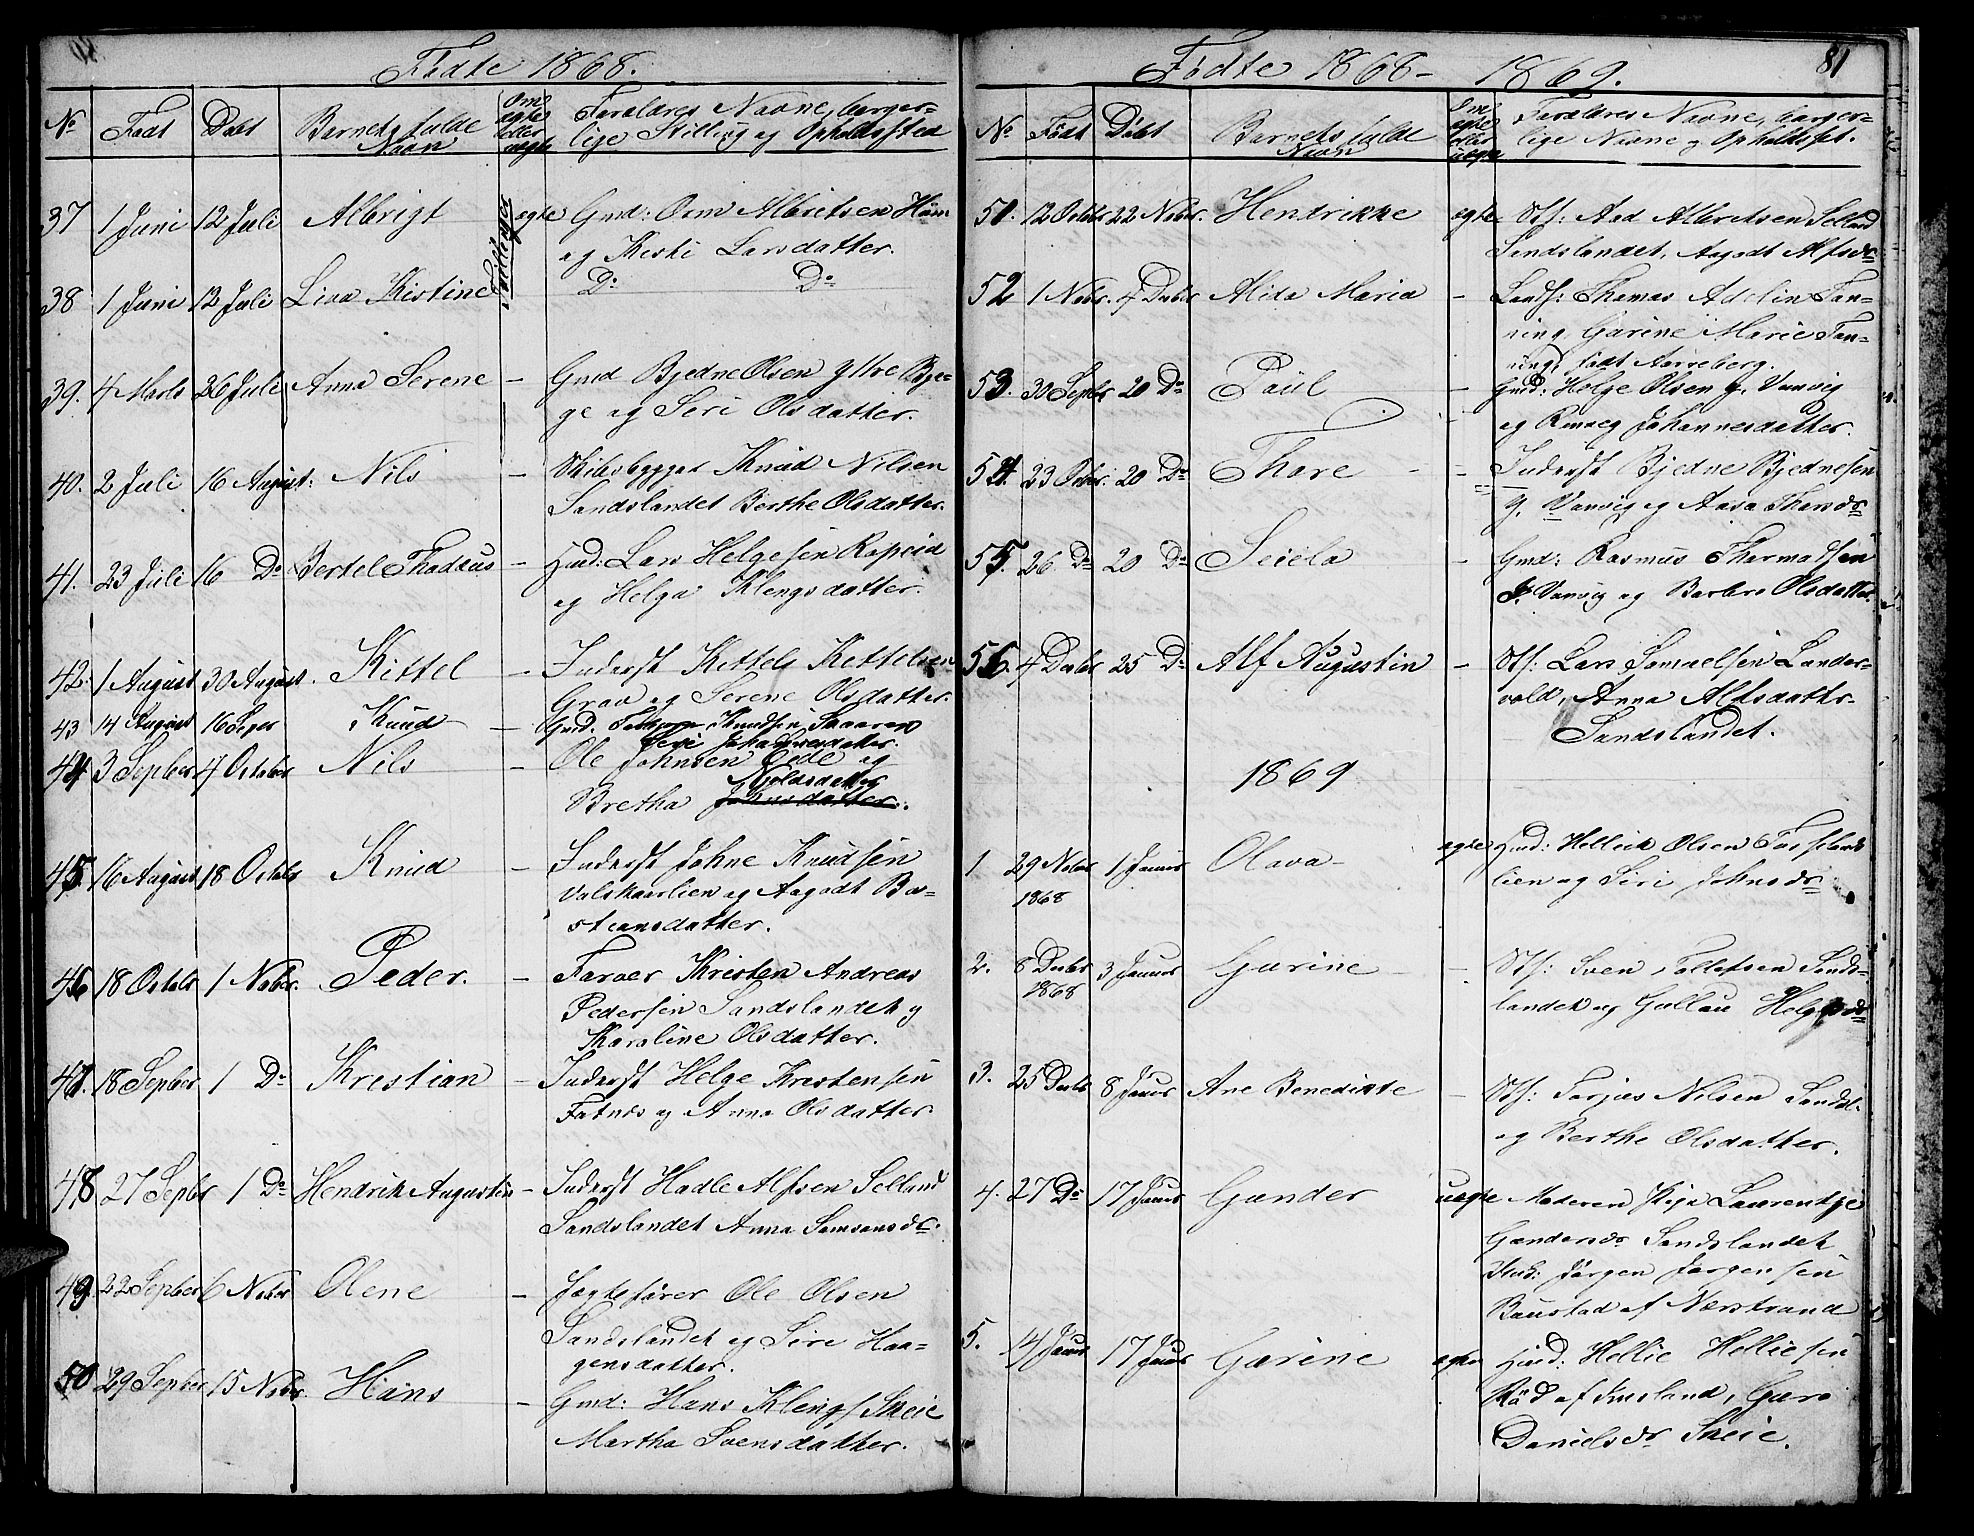 Fødte 1868.
No Født Døbt Barnets fulde Navn Om egte eller uegte Forældres Navne, borger-
lige Stilling og Opholdssted
37 1 Juni 12 Juli Albrigt Tvillinger egte Gmd: Orm Albretsen Ham
og Kirsti Larsdatter.
38 1 Juni 12 Juli Lina Kistine Do Do
39. 4 Marts 26 Juli Anna Serene - Gmd Bjedne Olsen Ytre Byr-
ge og Seri Olsdatter.
40. 2 Juli 16 August: Nils - Skibsbygger Knud Nilsen
Sandslandet Berthe Olsdatter.
41. 23 Juli 16 Do Bertel Thadeus - Hud: Lars Helgesen Rapeid
og Helga Klengsdatter.
42. 1 August 30 August. Kittel - Inderst Kettels Kettelsen
Grav og Serene Olsdatter.
43 14 August 16 Seper Knud - Gmd. Knudsen
Seri Johannesdatter.
44 3 Sepber 4 October Nils - Ole Johnsen Eide og
Njeldsdatter
Bretha Johnsdatter.
45. 16 August 18 Octobr Knud - Inderst Johne Knudsen
Valskaarlien og Aagodt Ba-
steansdatter.
46 18 Octobr 1 Nober. Peder. - Farver Kristen Andreas
Pedersen Sandslandet og
Karoline Olsdatter.
47. 18 Sepber 1 Do Krestian - Inderst Helge Krestensen
Fatnes og Anna Olsdatter.
48 27 Sepbr 1 Do Hendrik Augustin - Inderst Hadle Alfsen Selland
Sandslandet Anna Samsonsdr.
49. 22 Sepber 6 Nober Olene - Jagtefører Ole Olsen
Sandslandet og Sire Haa-
gensdatter.
50 29 Sepber 15 Nober. Hans - Gmd: Hans Klengs. Skeie
Martha Svensdatter.
Fødte 1868- 1869. 81
No Født Døbt Barnets fulde Navn Om egte eller uegte Forældres Navne, borger-
lige Navne og Opholdsst.
51. 12 Octobr 22 Nober. Hendrikke egte Stf: Aad Albretsen Selland
Sandslandet, Aagodt Alfsdr
52 1 Nobr. 4 Decbr Alida Maria - Landh: Thomas Adolin Fan-
ning, Garine Marie Fan-
ning, født Aarreberg.
53. 30 Sepbr 20 Do Paul - Gmd: Helge Olsen y. Vanvig
og Ranveg Johannesdatter.
54. 23 Octbr. 20 Do Thore - Inderst Bjedne Bjednesen
y. Vanvig og Aasa Thorsdr
55. 26 Do 20 Do Seiela - Gmd: Rasmus Thormodsen
I. Vanvig og Barbro Olsdatter.
56. 4 Decbr 25 Do Alf Augustin - Stf: Lars Samuelsen Lander-
vold, Anna Alfsdatter
Sandslandet.
1869
1 29 Nober 1868 1 Januar Olava - egte Hud: Hellick Olsen Fosseland
lien og Siri Johnsdr
2. 8 Decbr 1868 3 Januar Garine - Stf: Sven Tollefsen Sands-
landet og Gullau Helgesdr
3. 25 Decbr 8 Januar Ane Benedikte - Stf: Torjus Nilsen Sandsl.
og Berthe Olsdatter.
4. 27 Do 17 Januar Gunder uegte Moderen Pige Laurentze
Gundersdr Sandslandet
Und: Jørgen Jørgensen
Baustad af Nerstrand
5. 14 Januar 17 Januar Garine egte Hud: Hellie Helliesen
Rød af Imsland, Guro
Danielsdr Skeie.